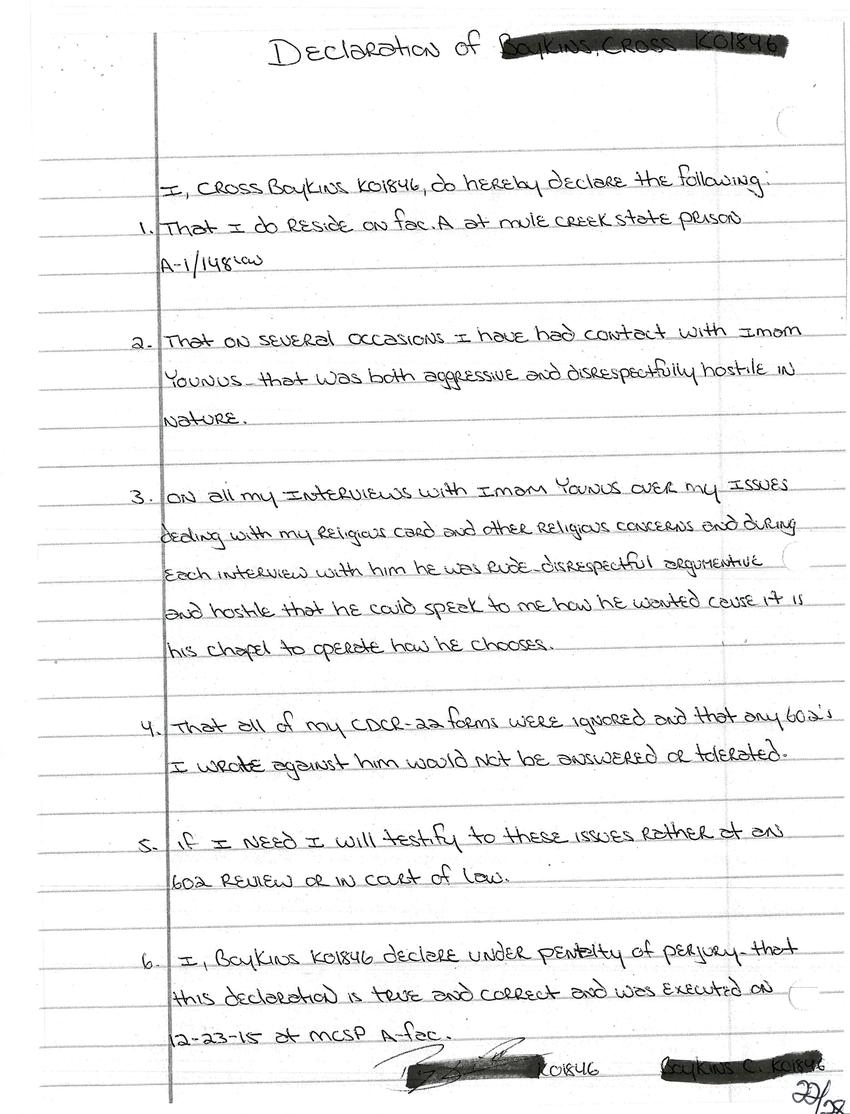 Declaration of Boykins, Cross K01846
I, Cross Boykins K01846, do hereby declare the following:
1. That I do reside on fac. A at mule creek state prison
A-1/148 low
2. That on several occasions I have had contact with Imam
Younus that was both aggressive and disrespectfully hostile in
nature.
3. On all my interviews with Imam Younus over my issues
dealing with my religious card and other religious concerns and during
each interview with him he was rude disrespectful argumentive
and hostile that he could speak to me how he wanted cause it is
his chapel to operate how he chooses.
4. That all of my CDCR-22 forms were ignored and that any 602's
I wrote against him would not be answered or tolerated.
5. If I need I will testify to these issues rather at an
602 review or in court of law.
6. I, Boykins K01846 declare under pentalty of perjury that
this declaration is true and correct and was executed on
12-23-15 at MCSP A-fac.
K01846 Boykins C. K01846
22/28